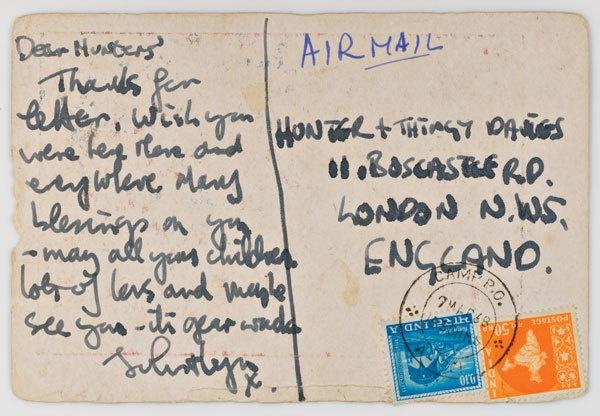 Dear Hunters'
Thanks for
letter. Wish you
were here there and
everywhere Many
blessings on you
- may all your children
lots of less and maybe
see you - its over words
x.
AIRMAIL
HUNTER + THINGY DAVIES
11, BOSCASTLE RD.
LONDON N.W5,
ENGLAND.
CAMP P.O.
INDIA
0.10
POSTAGE
50 NP